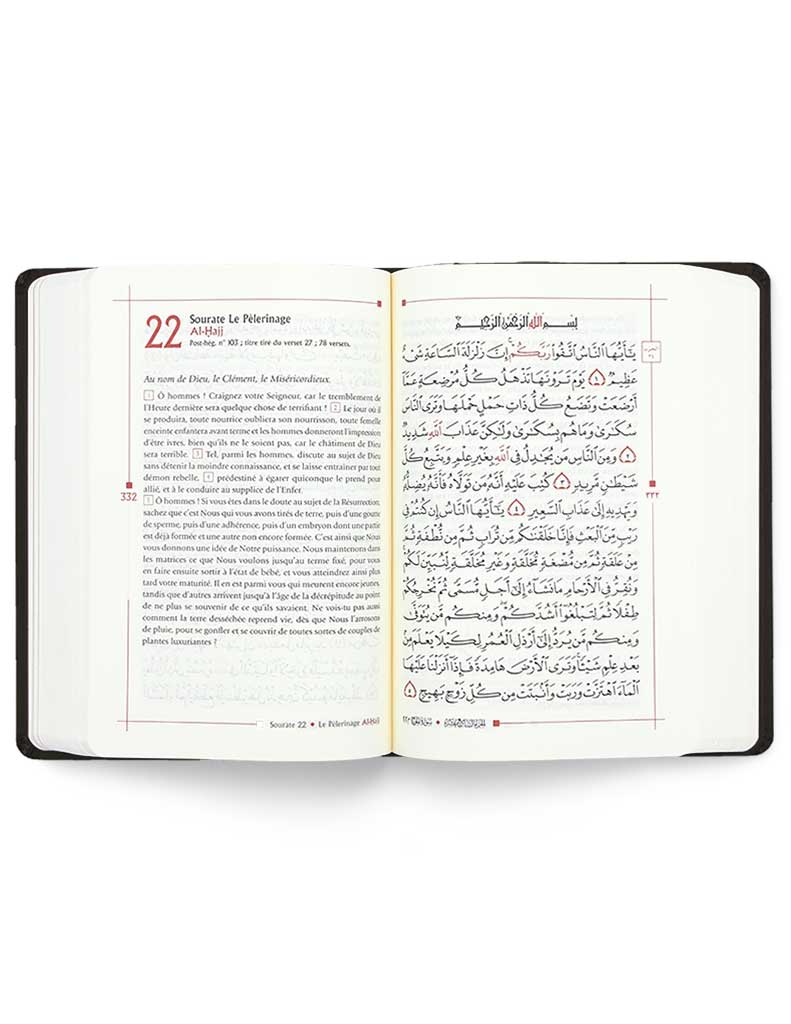 22
Sourate Le Pèlerinage
Al-Ḥajj
Post-hég. n° 103 ; titre tiré du verset 27 ; 78 versets.
Au nom de Dieu, le Clément, le Miséricordieux.
1 Ô hommes ! Craignez votre Seigneur, car le tremblement de
l'Heure dernière sera quelque chose de terrifiant ! 2 Le jour où il
se produira, toute nourrice oubliera son nourrisson, toute femelle
enceinte enfantera avant terme et les hommes donneront l'impression
d'être ivres, bien qu'ils ne le soient pas, car le châtiment de Dieu
sera terrible. 3 Tel, parmi les hommes, discute au sujet de Dieu
sans détenir la moindre connaissance, et se laisse entraîner par tout
démon rebelle, 4 prédestiné à égarer quiconque le prend pour
allié, et à le conduire au supplice de l'Enfer.
5 Ô hommes ! Si vous êtes dans le doute au sujet de la Résurrection,
sachez que c'est Nous qui vous avons tirés de terre, puis d'une goutte
de sperme, puis d'une adhérence, puis d'un embryon dont une partie
est déjà formée et une autre non encore formée. C'est ainsi que Nous
vous donnons une idée de Notre puissance. Nous maintenons dans
les matrices ce que Nous voulons jusqu'au terme fixé, pour vous
en faire ensuite sortir à l'état de bébé, et vous atteindrez ainsi plus
tard votre maturité. Il en est parmi vous qui meurent encore jeunes,
tandis que d'autres arrivent jusqu'à l'âge de la décrépitude au point
de ne plus se souvenir de ce qu'ils savaient. Ne vois-tu pas aussi
comment la terre desséchée reprend vie, dès que Nous l'arrosons
de pluie, pour se gonfler et se couvrir de toutes sortes de couples de
plantes luxuriantes ?
332
Sourate 22 ◆ Le Pèlerinage Al-Ḥajj
بِسْمِ اللَّهِ الرَّحْمَٰنِ الرَّحِيمِ
يَٰٓأَيُّهَا النَّاسُ اتَّقُوا۟ رَبَّكُمْ ۚ إِنَّ زَلْزَلَةَ السَّاعَةِ شَىْءٌ
عَظِيمٌ ١ يَوْمَ تَرَوْنَهَا تَذْهَلُ كُلُّ مُرْضِعَةٍ عَمَّآ
أَرْضَعَتْ وَتَضَعُ كُلُّ ذَاتِ حَمْلٍ حَمْلَهَا وَتَرَى النَّاسَ
سُكَٰرَىٰ وَمَا هُم بِسُكَٰرَىٰ وَلَٰكِنَّ عَذَابَ اللَّهِ شَدِيدٌ
٢ وَمِنَ النَّاسِ مَن يُجَٰدِلُ فِى اللَّهِ بِغَيْرِ عِلْمٍ وَيَتَّبِعُ كُلَّ
شَيْطَٰنٍ مَّرِيدٍ ٣ كُتِبَ عَلَيْهِ أَنَّهُۥ مَن تَوَلَّاهُ فَأَنَّهُۥ يُضِلُّهُۥ
وَيَهْدِيهِ إِلَىٰ عَذَابِ السَّعِيرِ ٤ يَٰٓأَيُّهَا النَّاسُ إِن كُنتُمْ فِى
رَيْبٍ مِّنَ الْبَعْثِ فَإِنَّا خَلَقْنَٰكُم مِّن تُرَابٍ ثُمَّ مِن نُّطْفَةٍ ثُمَّ
مِنْ عَلَقَةٍ ثُمَّ مِن مُّضْغَةٍ مُّخَلَّقَةٍ وَغَيْرِ مُخَلَّقَةٍ لِّنُبَيِّنَ لَكُمْ ۚ
وَنُقِرُّ فِى الْأَرْحَامِ مَا نَشَآءُ إِلَىٰٓ أَجَلٍ مُّسَمًّى ثُمَّ نُخْرِجُكُمْ
طِفْلًا ثُمَّ لِتَبْلُغُوٓا۟ أَشُدَّكُمْ ۖ وَمِنكُم مَّن يُتَوَفَّىٰ
وَمِنكُم مَّن يُرَدُّ إِلَىٰٓ أَرْذَلِ الْعُمُرِ لِكَيْلَا يَعْلَمَ مِنۢ
بَعْدِ عِلْمٍ شَيْـًٔا ۚ وَتَرَى الْأَرْضَ هَامِدَةً فَإِذَآ أَنزَلْنَا عَلَيْهَا
الْمَآءَ اهْتَزَّتْ وَرَبَتْ وَأَنۢبَتَتْ مِن كُلِّ زَوْجٍۭ بَهِيجٍ ٥
٣٣٢